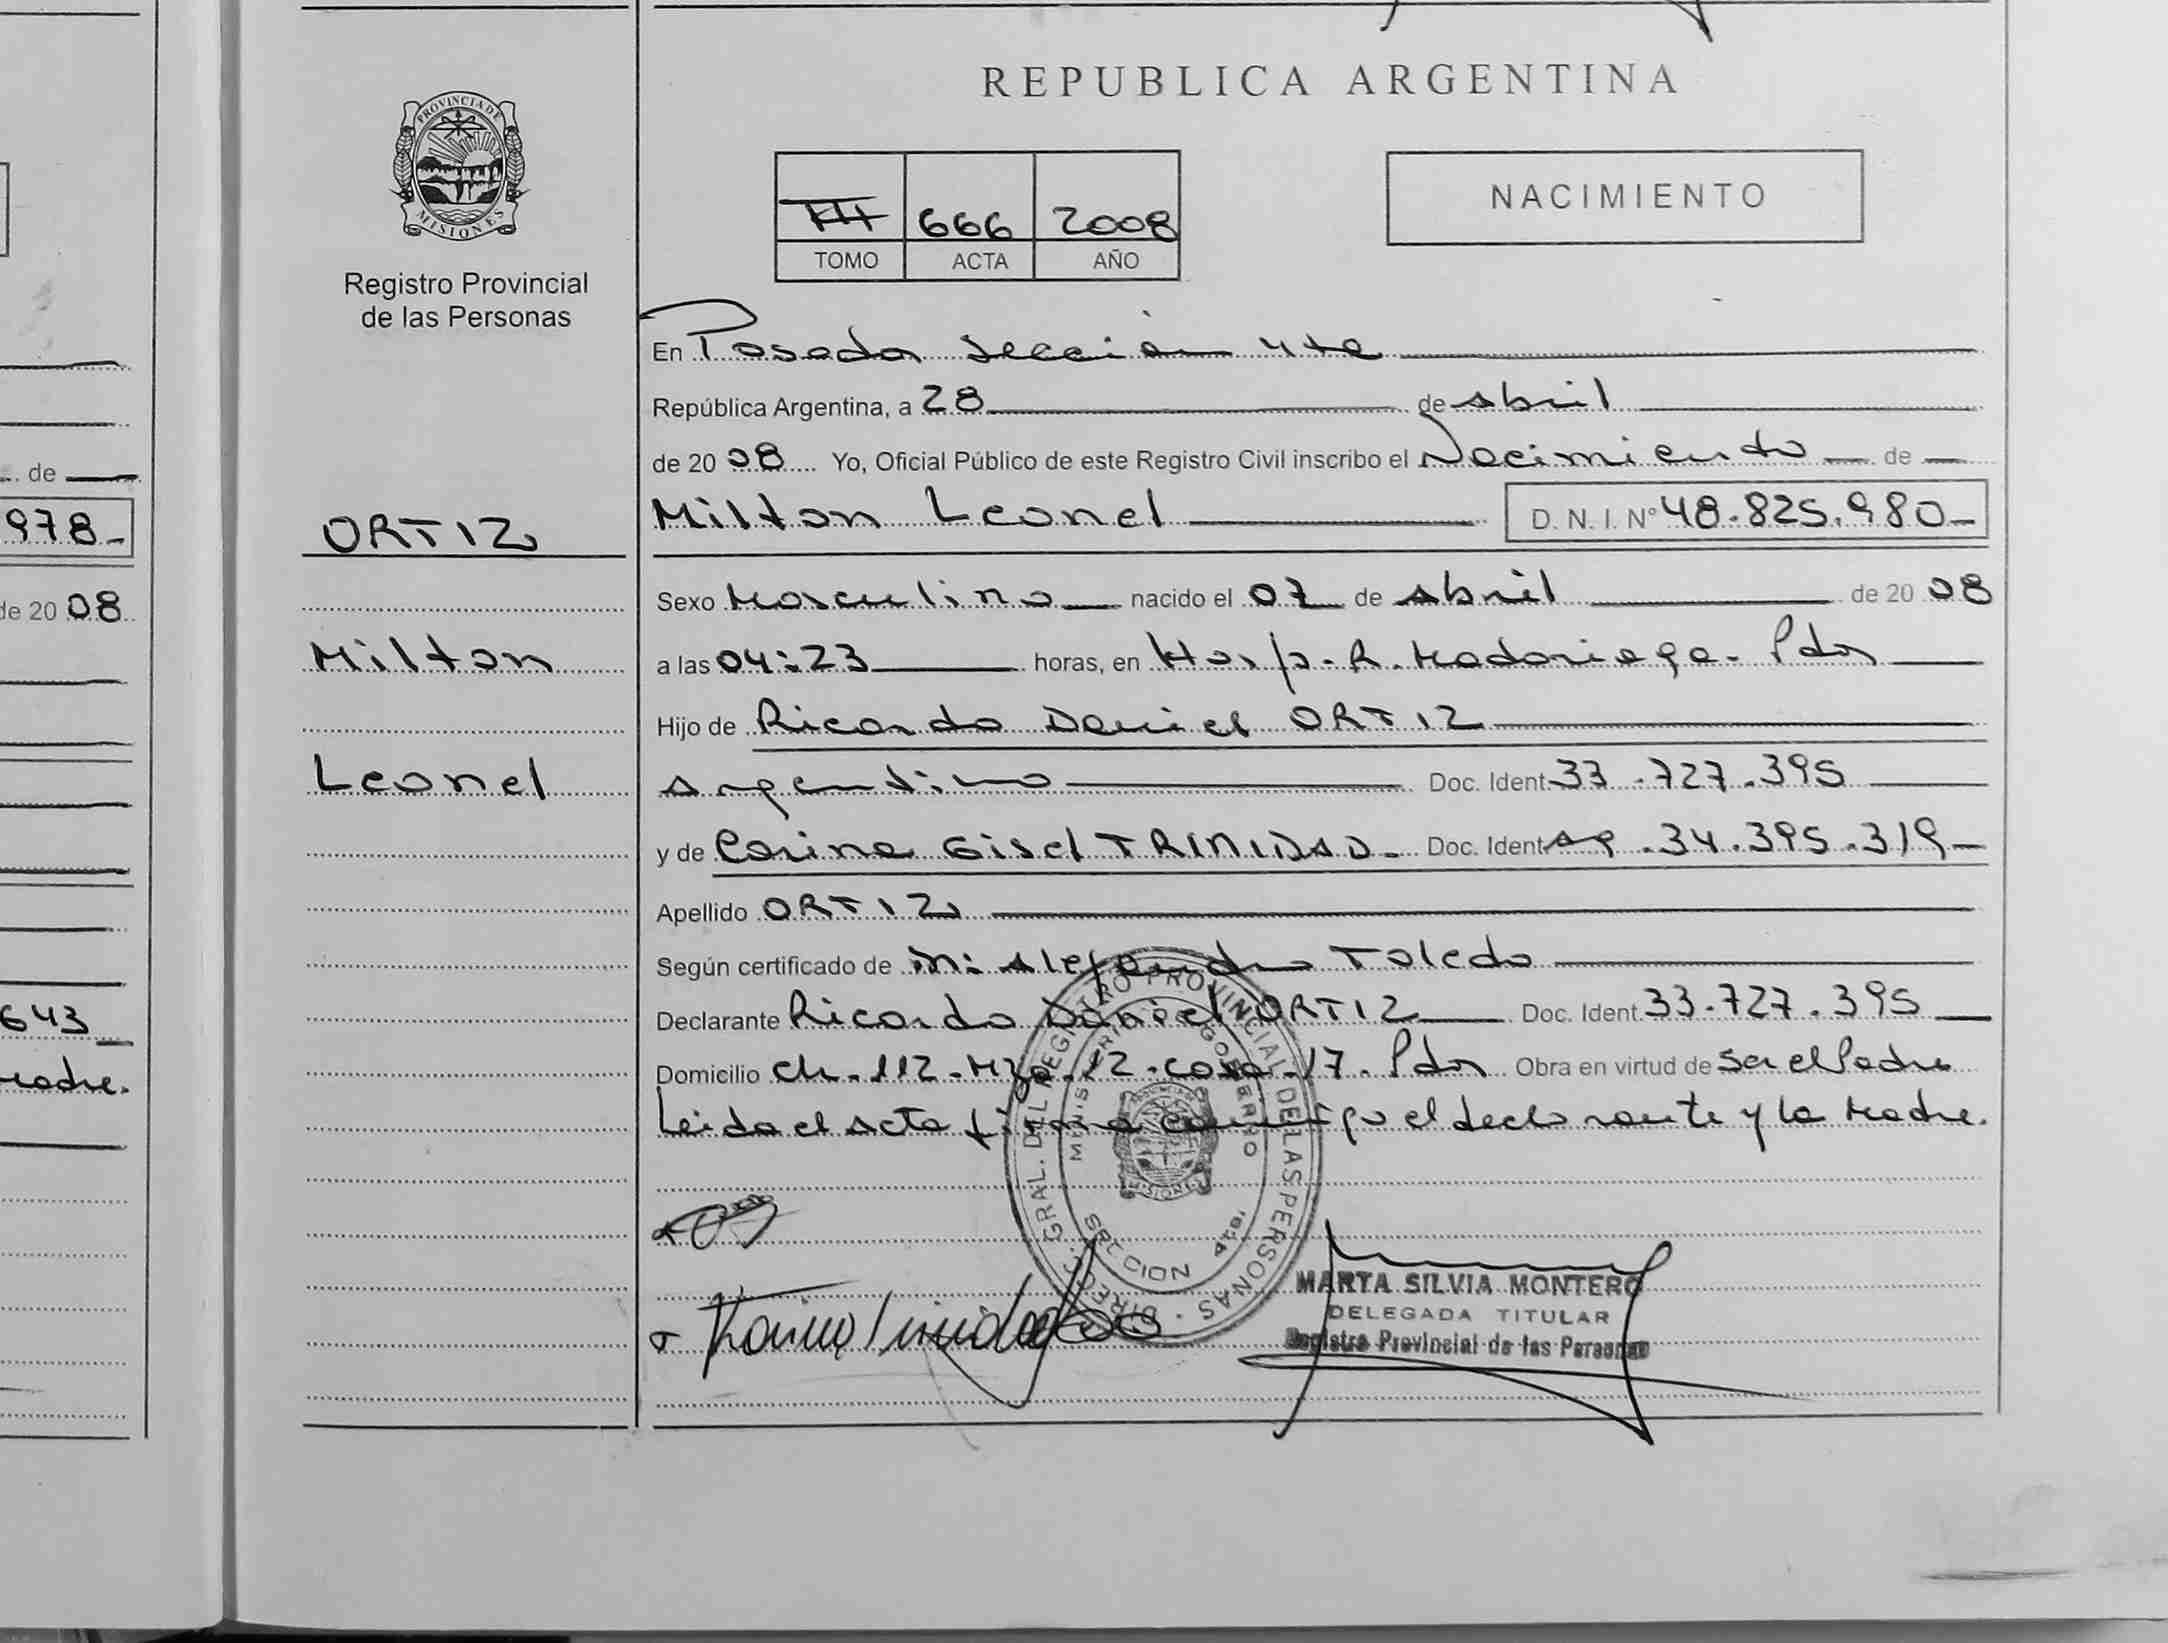 978-
de
de 20 08
643
PROVINCIA DE
MISIONES
Registro Provincial
de las Personas
ORTIZ
Milton
Leonel
REPUBLICA ARGENTINA
III 666 2008
TOMO ACTA AÑO
NACIMIENTO
En Posadas Sección 4ta
República Argentina, a 28 de abril
de 20 08 Yo, Oficial Público de este Registro Civil inscribo el Nacimiento de
Milton Leonel D. N. I. Nº 48.825.980-
Sexo Masculino nacido el 07 de abril de 20 08
a las 04:23 horas, en Hosp. R. Madariaga. Pdas
Hijo de Ricardo Daniel ORTIZ
argentino Doc. Ident. 33.727.395
y de Carina Gisel TRINIDAD Doc. Ident. 34.395.319
Apellido ORTIZ
Según certificado de Alejandro Toledo
Declarante Ricardo Daniel ORTIZ Doc. Ident. 33.727.395
Domicilio ch. 112. Mza. 12. casa. 17. Pdas Obra en virtud de ser el Padre
Leida el acta firma conmigo el declarante y la Madre.
DIRECC. GRAL. DEL REGISTRO PROVINCIAL DE LAS PERSONAS
MINISTERIO GOBIERNO
SECCION
MARTA SILVIA MONTERO
DELEGADA TITULAR
Registro Provincial de las Personas